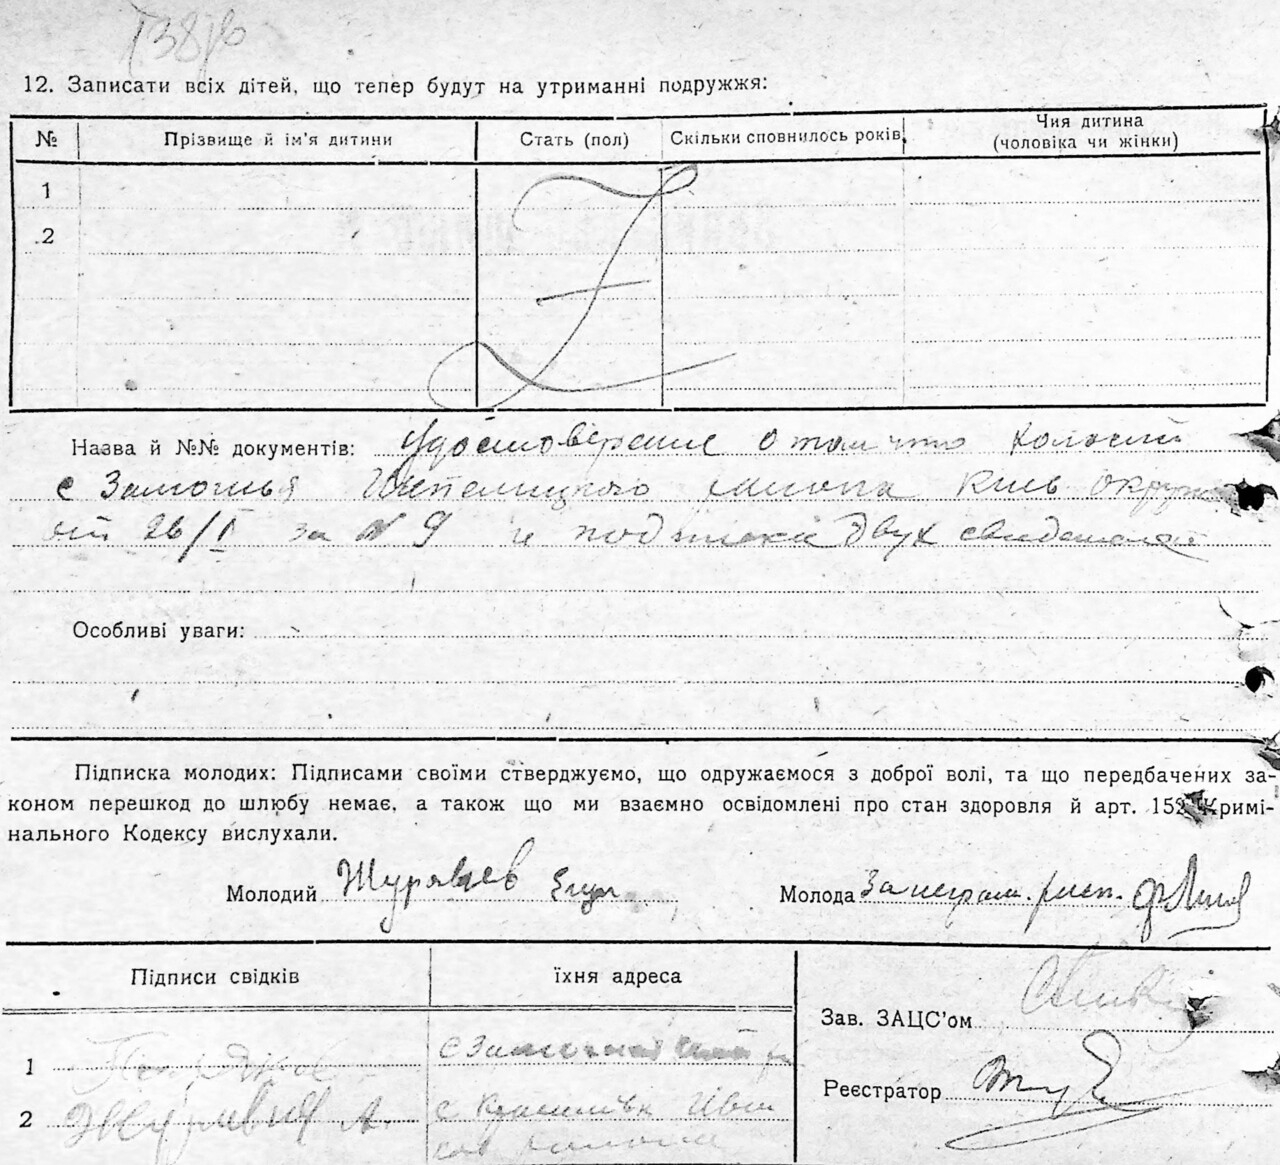 12. Записати всіх дітей, що тепер будут на утриманні подружжя:
№ Прізвище й ім'я дитини Стать (пол) Скільки сповнилось років, Чия дитина (чоловіка чи жінки)
1
2
Назва й №№ документів: Удостоверение о том что
с Замошья района Киів округи
от 26/I за N 9 и подписка двух свидетелей
Особливі уваги:
Підписка молодих: Підписами своїми стверджуємо, що одружаємося з доброї волі, та що передбачених за-
коном перешкод до шлюбу немає, а також що ми взаємно освідомлені про стан здоровля й арт. 152 Кримі-
нального Кодексу вислухали.
Молодий Журавлев Молода За неграм. расп.
Підписи свідків їхня адреса
Зав. ЗАЦС'ом
1 с
Реєстратор
2 А. с Красилівка